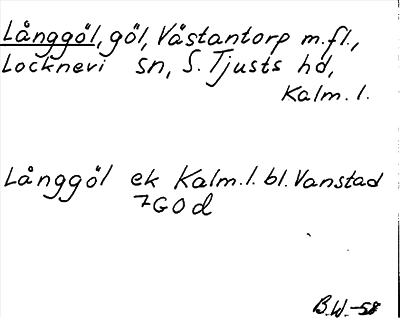 Långgöl, göl, Västantorp m.fl.,
Locknevi sn, S. Tjusts hd,
Kalm. l.
Långgöl ek Kalm. l. bl. Vanstad
7G0d
B.W.-58